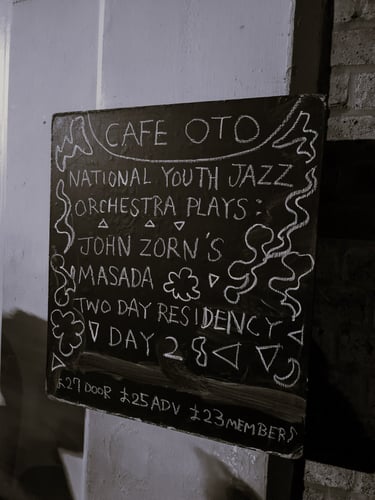 CAFE OTO
NATIONAL YOUTH JAZZ
ORCHESTRA PLAYS:
JOHN ZORN'S
MASADA
TWO DAY RESIDENCY
DAY 2
£27 DOOR £25 ADV £23 MEMBERS